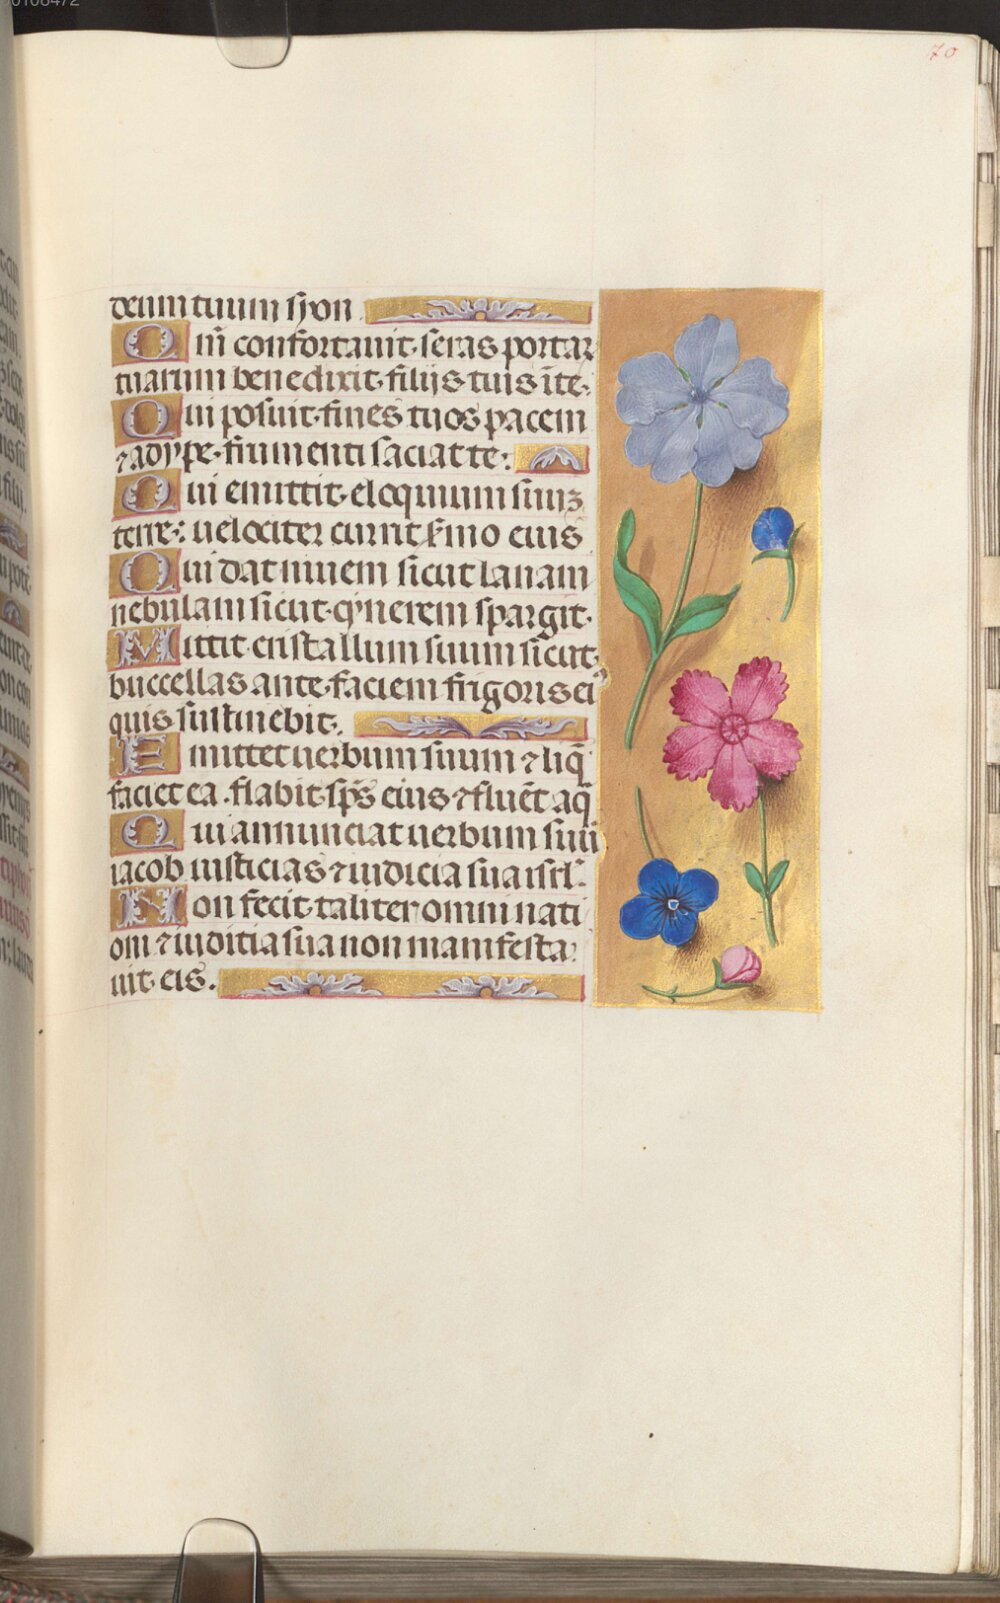 70
deum tuum syon
Qm̄ confortauit seras portar
tuarum benedixit filijs tuis ī te.
Qui posuit fines tuos pacem
⁊ adype frumenti saciat te:
Qui emittit eloquium suuꝫ
terre: uelociter currit s̄mo eius
Qui dat niuem sicut lanam
nebulam sicut cynerem spargit.
Mittit cristallum suum sicut
buccellas ante faciem frigoris ei
quis sustinebit.
Emittet uerbum suum ⁊ liq̄
faciet ea. flabit sp̄s eius ⁊ fluēt aq̄
Qui annunciat uerbum suū
iacob iusticias ⁊ iudicia sua isrl.
Non fecit taliter omni nati
oni ⁊ iuditia sua non manifesta
uit eis.